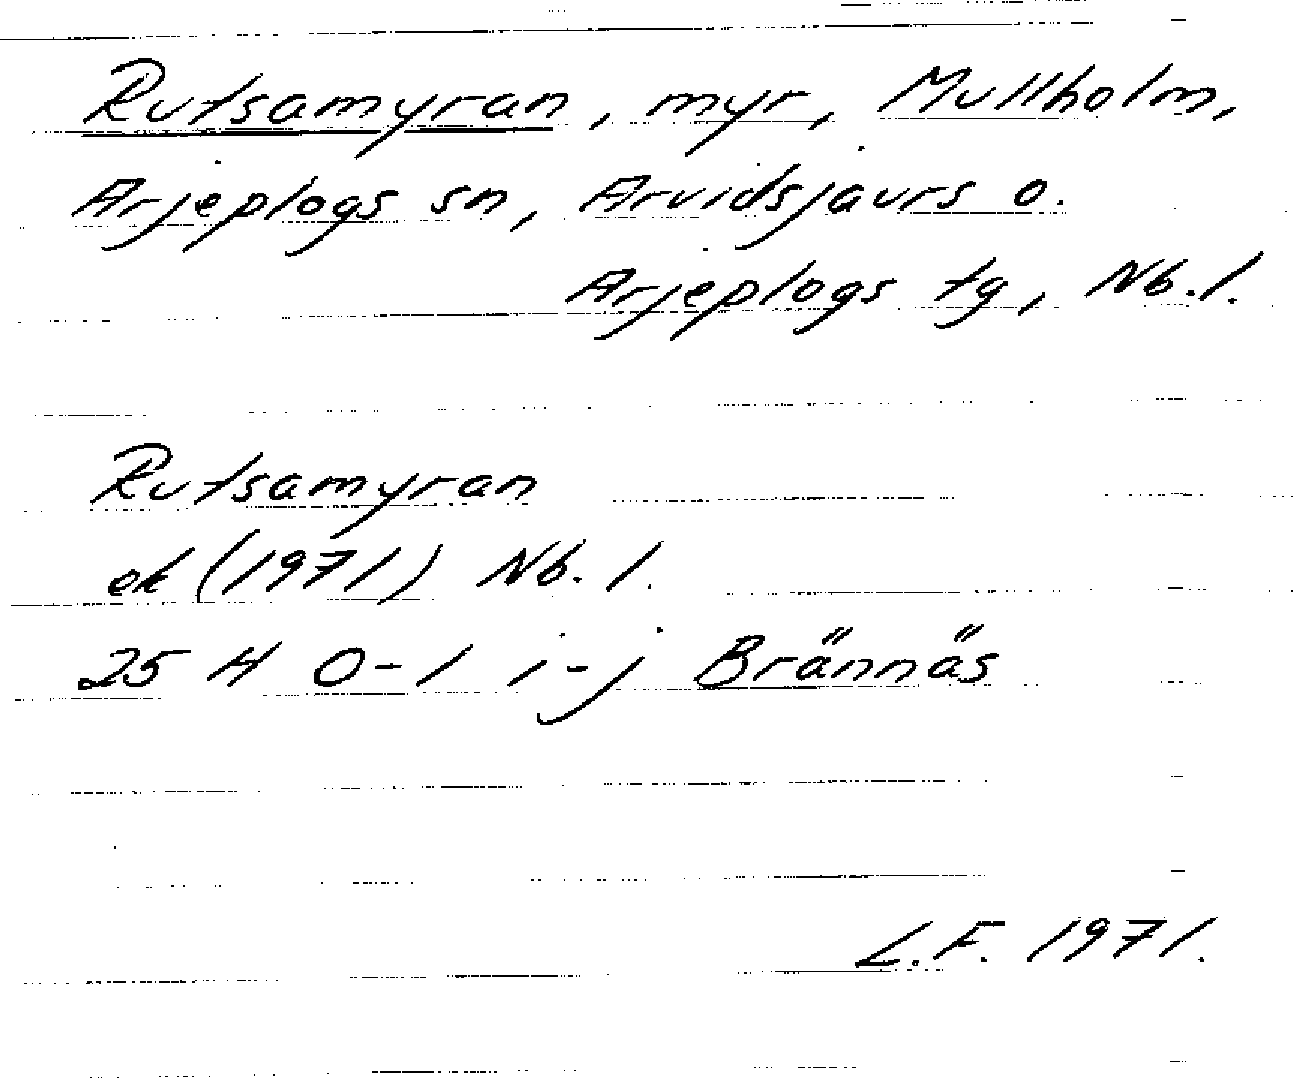 Rutsamyran, myr, Mullholm,
Arjeplogs sn, Arvidsjaurs o.
Arjeplogs tg, Nb.l.
Rutsamyran
ek (1971) Nb. l.
25 H 0-1 i-j Brännäs
L.F. 1971.